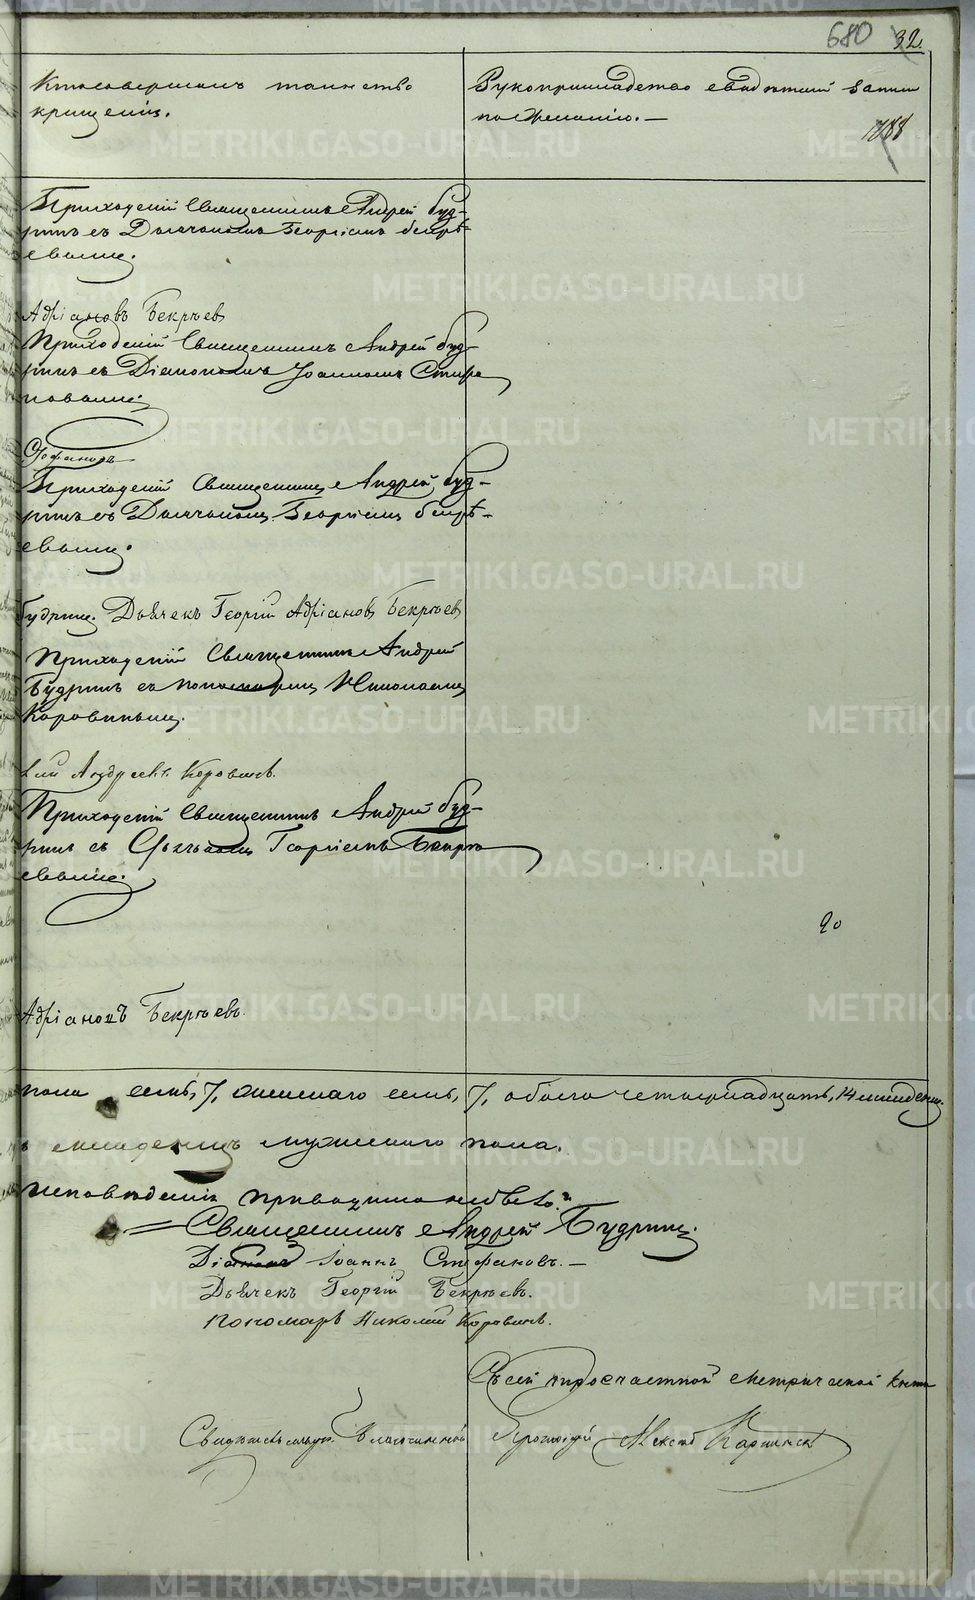 680 32
Кто совершалъ таинство
крещенія.
Рукоприкладство свидѣтелей записи
по желанію. —
Приходскій Священникъ Андрей Буд-
ринъ съ Дьячкомъ Георгіемъ Бекрѣ-
евымъ.
Адріановъ Бекрѣев
Приходскій Священникъ Андрей Буд-
ринъ съ Діакономъ Іоанномъ Стефа
новымъ.
Стефановъ
Приходскій Священникъ Андрей Буд-
ринъ съ Дьячкомъ Георгіемъ Бекрѣ-
евымъ.
Будринъ. Дьячекъ Георгій Адріановъ Бекрѣев
Приходскій Священникъ Андрей
Будринъ съ пономаремъ Николаемъ
Коровинымъ.
лай Андреевъ Коровинъ.
Приходскій Священникъ Андрей Буд-
ринъ съ Дьячкомъ Георгіемъ Бекрѣ
евымъ.
20
Адріановъ Бекрѣевъ.
пола семь, 7, женскаго семь, 7, обоего четырнадцать, 14 младенц.
младенцъ мужескаго пола.
исповѣданія
Священникъ Андрей Будринъ.
Діаконъ Іоаннъ Стефановъ. —
Дьячекъ Георгій Бекрѣевъ.
Пономарь Николай Коровинъ.
Къ сей метрической книг
METRIKI.GASO-URAL.RU